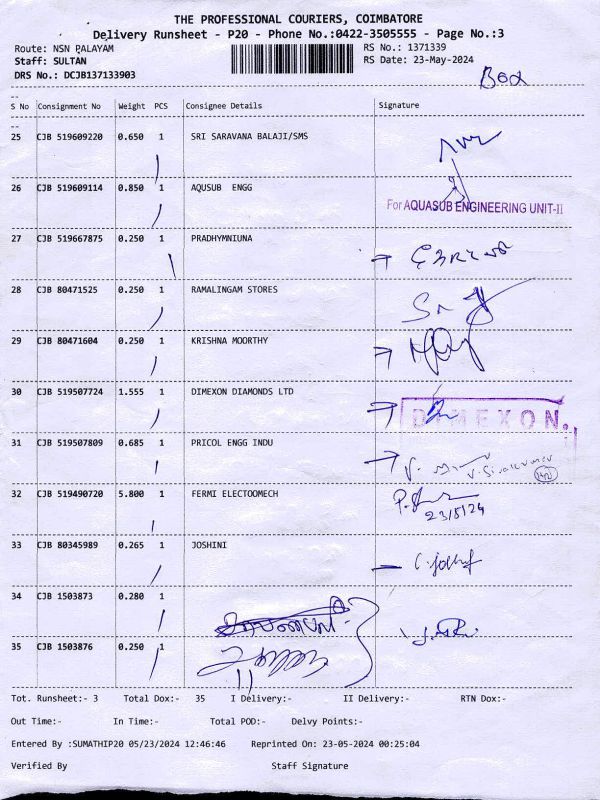 THE PROFESSIONAL COURIERS, COIMBATORE
Delivery Runsheet - P20 - Phone No.:0422-3505555 - Page No.:3
Route: NSN PALAYAM RS No.: 1371339
Staff: SULTAN RS Date: 23-May-2024
DRS No.: DCJB137133903
Box
S No Consignment No Weight PCS Consignee Details Signature
25 CJB 519609220 0.650 1 SRI SARAVANA BALAJI/SMS
26 CJB 519609114 0.850 1 AQUSUB ENGG
For AQUASUB ENGINEERING UNIT-II
27 CJB 519667875 0.250 1 PRADHYMNIUNA
28 CJB 80471525 0.250 1 RAMALINGAM STORES
29 CJB 80471604 0.250 1 KRISHNA MOORTHY
30 CJB 519507724 1.555 1 DIMEXON DIAMONDS LTD
DIMEXON.
31 CJB 519507809 0.685 1 PRICOL ENGG INDU
V. Sivakumar
32 CJB 519490720 5.800 1 FERMI ELECTOOMECH
23/5/24
33 CJB 80345989 0.265 1 JOSHINI
34 CJB 1503873 0.280 1
35 CJB 1503876 0.250 1
Tot. Runsheet:- 3 Total Dox:- 35 I Delivery:- II Delivery:- RTN Dox:-
Out Time:- In Time:- Total POD:- Delvy Points:-
Entered By :SUMATHIP20 05/23/2024 12:46:46 Reprinted On: 23-05-2024 00:25:04
Verified By Staff Signature